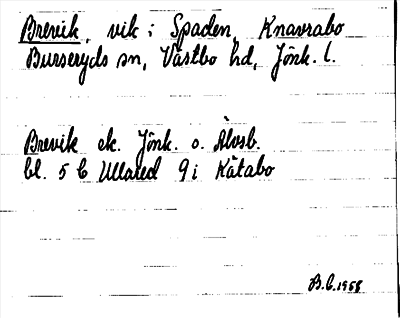 Brevik, vik i Spaden, Knavrabo
Burseryds sn, Västbo hd, Jönk. l.
Brevik ek. Jönk. o. Älvsb.
bl. 5 C Ullared 9 i Kåtabo
B.C. 1958